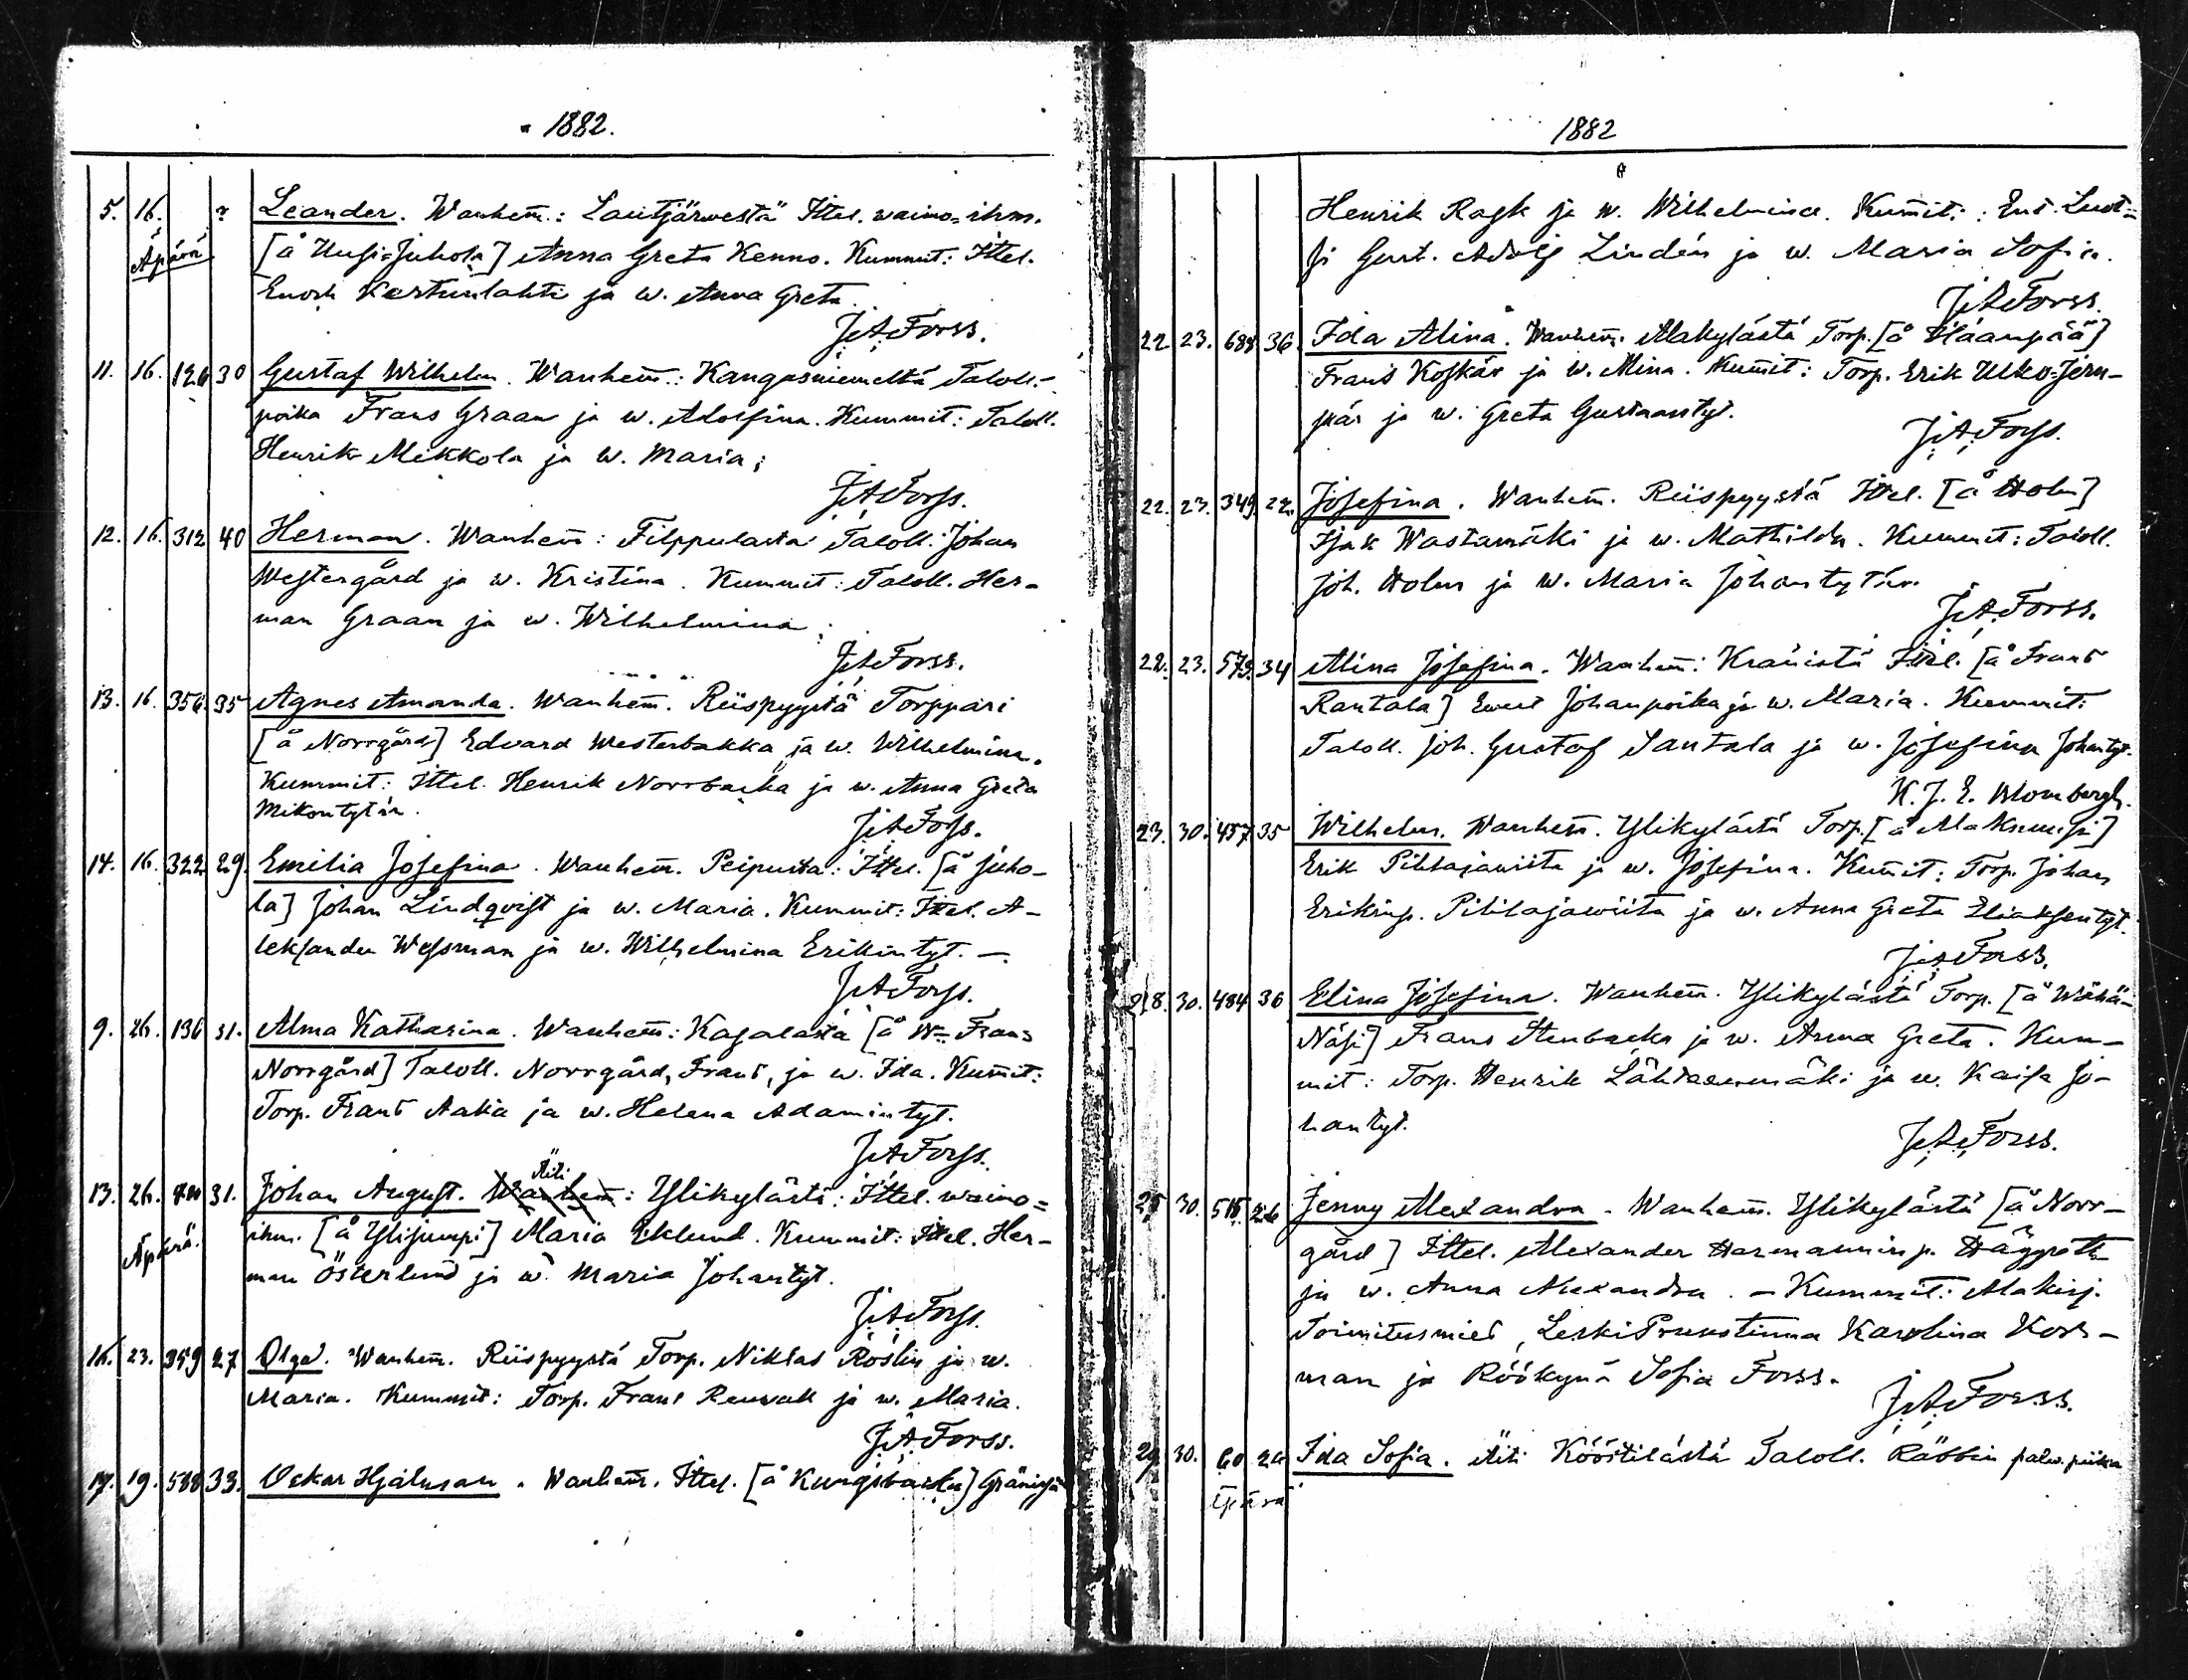 1882.
5. 16. Leander. Wanhem̄.: Lautjärwestä Ittel. waimo-ihm.
Äpärä [å Uusi-Juhola] Anna Greta Kenno. Kummit: Ittel.
Enosh Kertunlahti ja w. Anna Greta.
J. A. Forss.
11. 16. 126 30 Gustaf Wilhelm. Wanhem̄.: Kangasniemeltä Taloll.-
poika Frans Graan ja w. Adolfina. Kummit: Taloll.
Henrik Mikkola ja w. Maria;
J. A. Forss.
12. 16. 312 40 Herman. Wanhem̄: Filppulasta Taloll. Johan
Westergård ja w. Kristina. Kummit: Taloll. Her-
man Graan ja w. Wilhelmina;
J. A. Forss.
13. 16. 356. 35 Agnes Amanda. Wanhem̄. Riispyystä Torppari
[å Norrgård] Edvard Westerbakka ja w. Wilhelmina.
Kummit: Ittel. Henrik Norrbacka ja w. Anna Greta
Mikontytär.
J. A. Forss.
14. 16. 322 29. Emilia Josefina. Wanhem̄. Peipusta: Ittel. [å Juho-
la] Johan Lindqvist ja w. Maria. Kummit: Ittel. A-
leksander Wessman ja w. Wilhelmina Erikintyt. —.
J. A. Forss.
9. 26. 136 31. Alma Katharina. Wanhem̄: Kasalasta [å Frans
Norrgård] Taloll. Norrgård, Frans, ja w. Ida. Kum̄it:
Torp. Frans Aaka ja w. Helena Adamintyt.
J. A. Forss.
Äiti
13. 26. 31. Johan August. Wanhem̄: Ylikylästä: Ittel. waimo=
Äpärä. ihm. [å Ylijumpi] Maria Eklund. Kummit: Ittel. Her-
man Österlund ja w. Maria Johantyt.
J. A. Forss.
16. 23. 359 27 Olga. Wanhem̄. Riispyystä Torp. Niklas Roslin ja w.
Maria. Kummit: Torp. Frans Renvall ja w. Maria.
J. A. Forss.
17. 19. 588 33. Oskar Hjalmar. Wanhem̄. Ittel. [å Kungsbacka]
1882
Henrik Rask ja w. Wilhelmina. Kum̄it: Ent. Luot-
si Gust. Adolf Lindén ja w. Maria Sofia.
J. A. Forss.
22 23. 688 36. Ida Alina. Wanhem̄. Alakylästä Torp. [å Haanpää]
Frans Koskår ja w. Mina. Kum̄it: Torp. Erik Ulko-Jern-
pär ja w. Greta Gustaantyt.
J. A. Forss.
22. 23. 349 22. Josefina. Wanhem̄. Riispyystä Ittel. [å Holm]
Isak Wastamäki ja w. Mathilda. Kummit: Taloll.
Joh. Holm ja w. Maria Johantytär.
J. A. Forss.
22. 23. 573. 34 Alina Josefina. Wanhem̄: Ittel. [å Frans
Rantala] Johanpoika ja w. Maria. Kummit:
Taloll. Joh. Gustaf Santala ja w. Josefina Johantyt.
K. J. E. Blombergh.
23. 30. 457 35 Wilhelm. Wanhem̄. Ylikylästä Torp. [å Alaknuusi]
Erik Pihlajawiita ja w. Josefina. Kum̄it: Torp. Johan
Erikinp. Pihlajawiita ja w. Anna Greta Eliaksentyt.
J. A. Forss.
28. 30. 484 36 Elina Josefina. Wanhem̄. Ylikylästä Torp. [å Wähä-
Näsi] Frans Stenbacka ja w. Anna Greta. Kum-
mit: Torp. Henrik Lähteenmäki ja w. Kaisa Jo-
hantyt.
J. A. Forss.
25 30. 515 26 Jenny Alexandra. Wanhem̄. Ylikylästä [å Norr-
gård] Ittel. Alexander Hermanninp. Häggroth
ja w. Anna Alexandra. — Kummit: Allakirj.
Toimitusmies, Leski Pruustinna Karolina Kors-
man ja Röökynä Sofia Forss.
J. A. Forss.
29. 30. 60 24 Ida Sofia. Äiti Köörtilästä Taloll. Räbbin palw. piika
äpärä